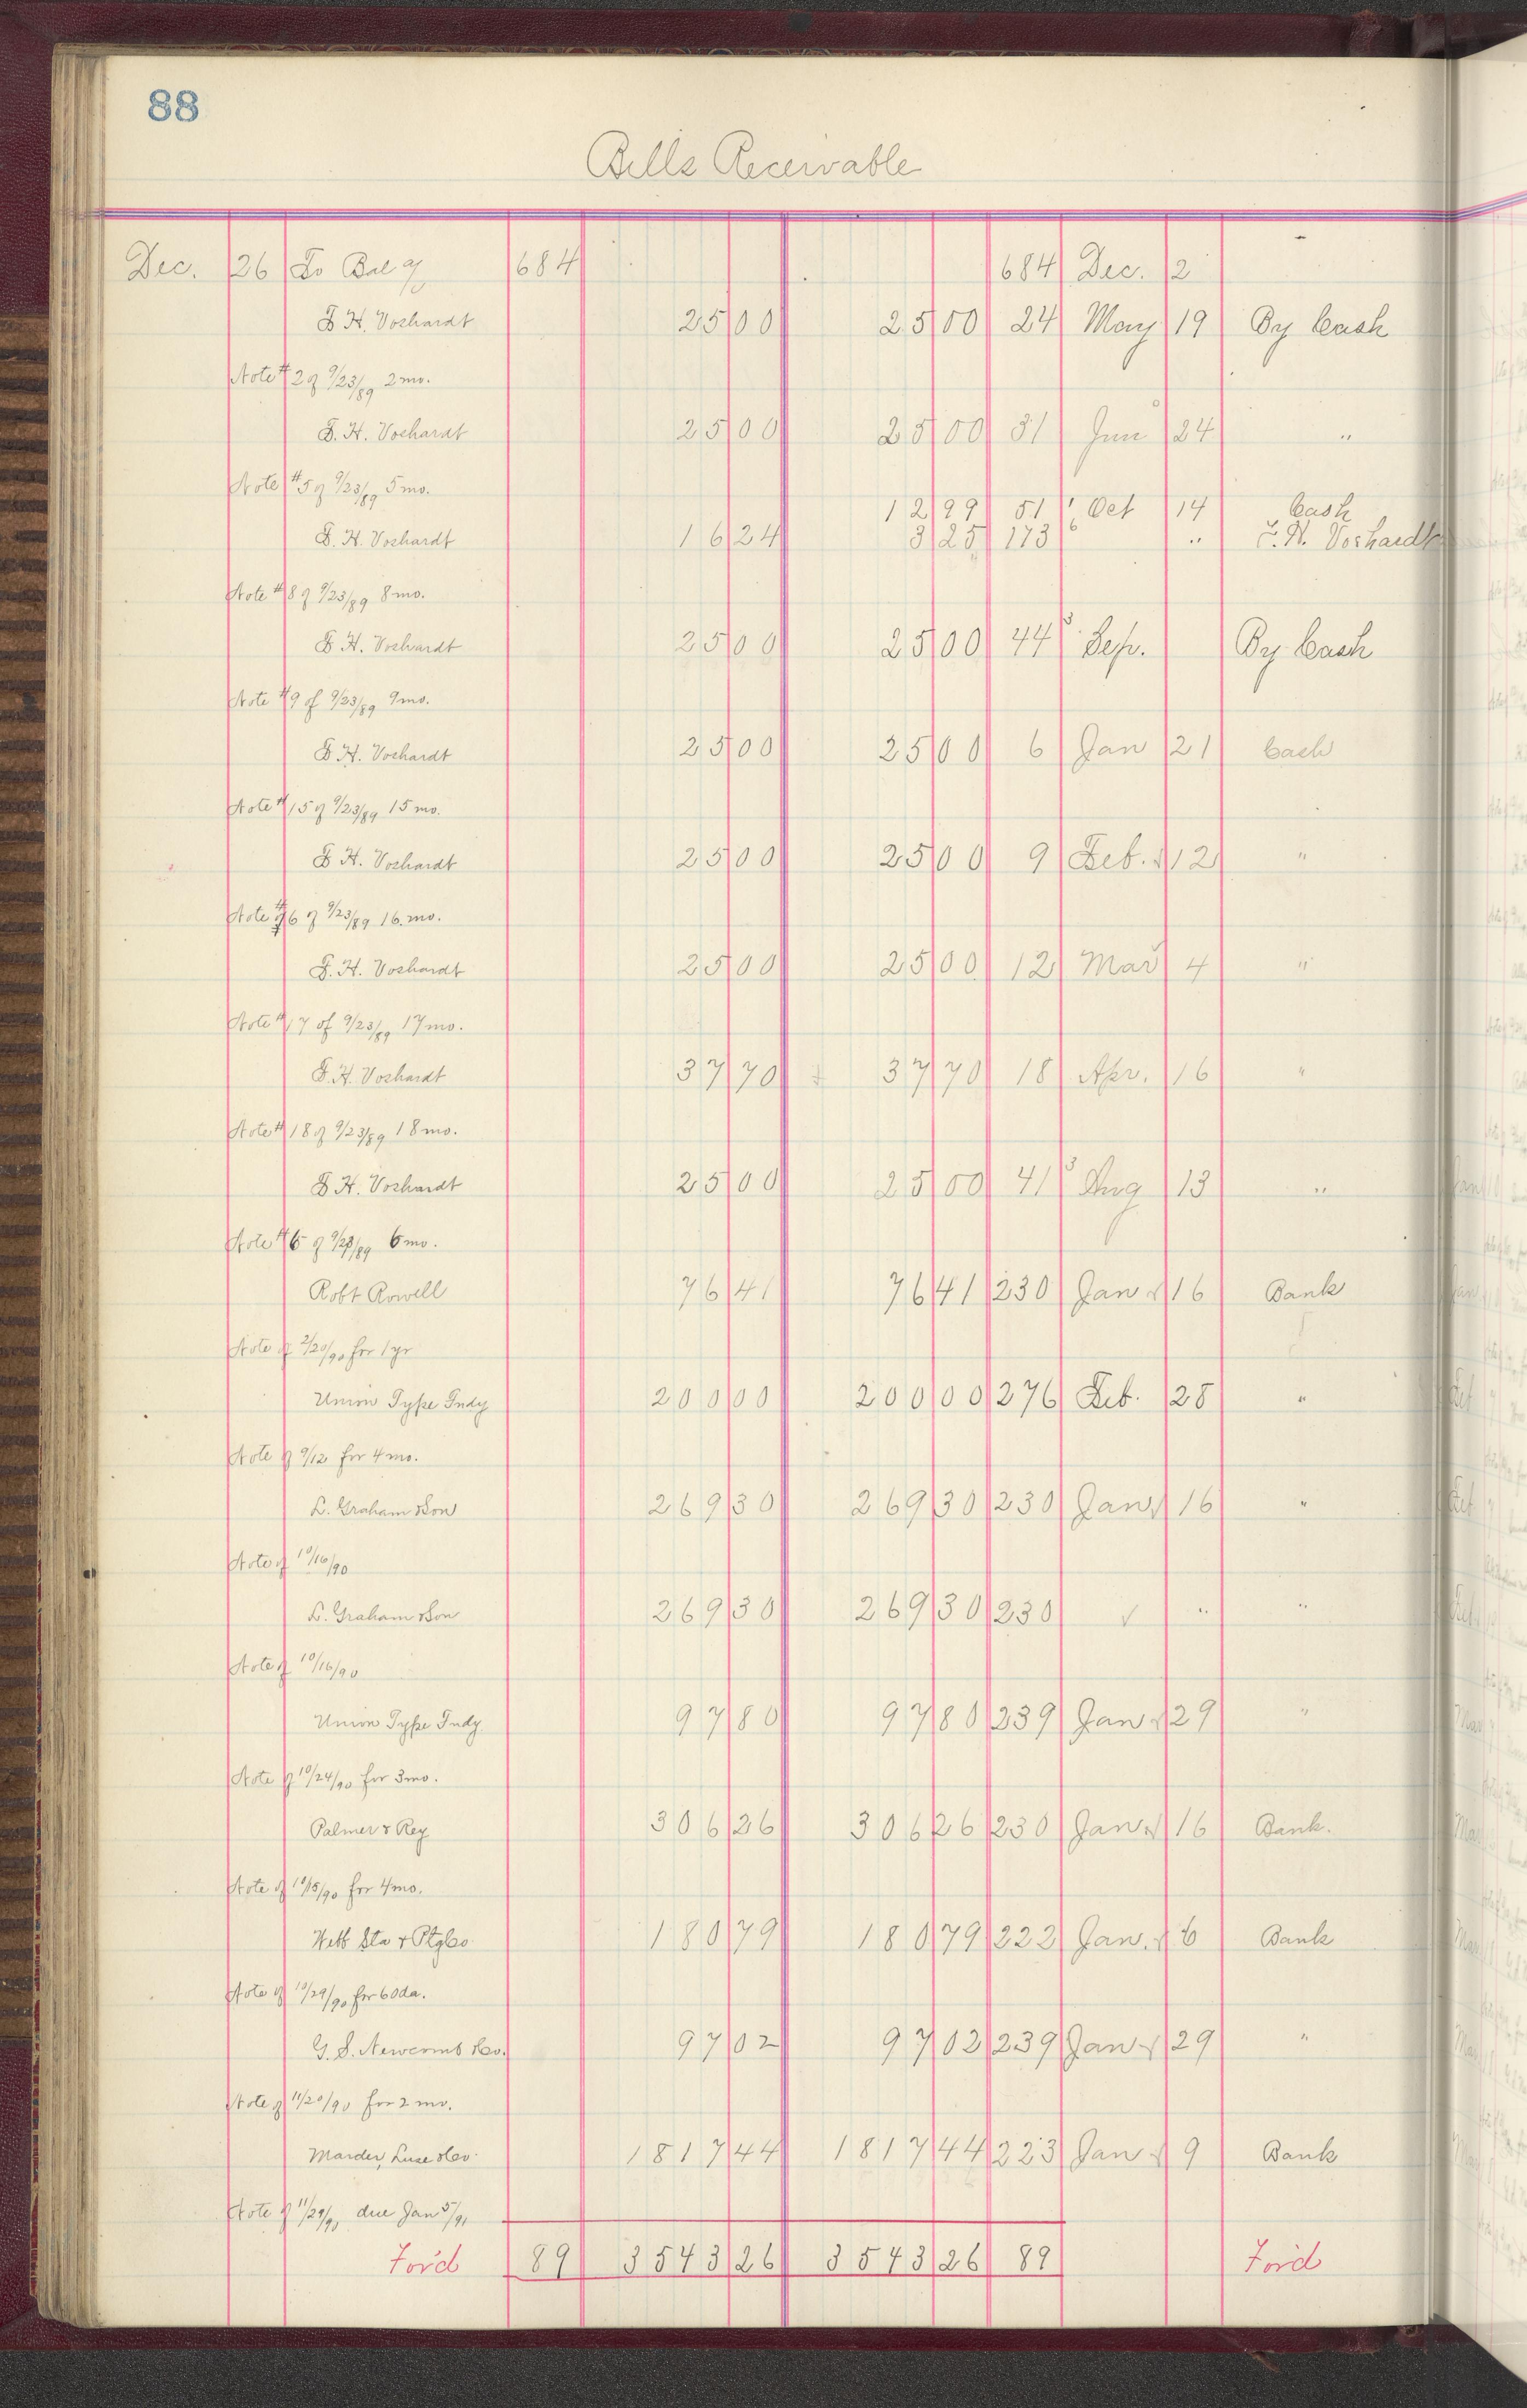 88
Bills Receivable
Dec. 26 To Bal 684 684 Dec. 2
F. H. Voshardt 25 00 25 00 24 May 19 By Cash
Note #2 of 9/23/89 2 mo.
F. H. Voshardt 25 00 25 00 31 Jun 24 "
Note #5 of 9/23/89 5 mo.
12 99 51 Oct 14 Cash
F. H. Voshardt 16 24 3 25 173 " F. H. Voshardt
Note #8 of 9/23/89 8 mo.
F. H. Voshardt 25 00 25 00 44 Sep. By Cash
Note #9 of 9/23/89 9 mo.
F. H. Voshardt 25 00 25 00 6 Jan 21 Cash
Note #15 of 9/23/89 15 mo.
F. H. Voshardt 25 00 25 00 9 Feb. 12 "
Note #16 of 9/23/89 16 mo.
F. H. Voshardt 25 00 25 00 12 Mar 4 "
Note #17 of 9/23/89 17 mo.
F. H. Voshardt 37 70 37 70 18 Apr. 16 "
Note #18 of 9/23/89 18 mo.
F. H. Voshardt 25 00 25 00 41 Aug 13 "
Note #6 of 9/23/89 6 mo.
Robt Rowell 76 41 76 41 230 Jan 16 Bank
Note of 2/20/90 for 1 yr
Union Type Fndy 200 00 200 00 276 Feb. 28 "
Note of 9/12 for 4 mo.
L. Graham & Son 269 30 269 30 230 Jan 16 "
Note of 10/16/90
L. Graham & Son 269 30 269 30 230 ✓ " "
Note of 10/16/90
Union Type Fndy 97 80 97 80 239 Jan 29 "
Note of 10/24/90 for 3 mo.
Palmer & Rey 306 26 306 26 230 Jan 16 Bank.
Note of 10/15/90 for 4 mo.
Webb Sta & Ptg Co 180 79 180 79 222 Jan. 6 Bank
Note of 10/29/90 for 60 da.
G. S. Newcomb & Co. 97 02 97 02 239 Jan 29 "
Note of 11/20/90 for 2 mo.
Marder, Luse & Co. 1817 44 1817 44 223 Jan 9 Bank
Note of 11/29/90 due Jan 5/91
For'd 89 3543 26 3543 26 89 For'd